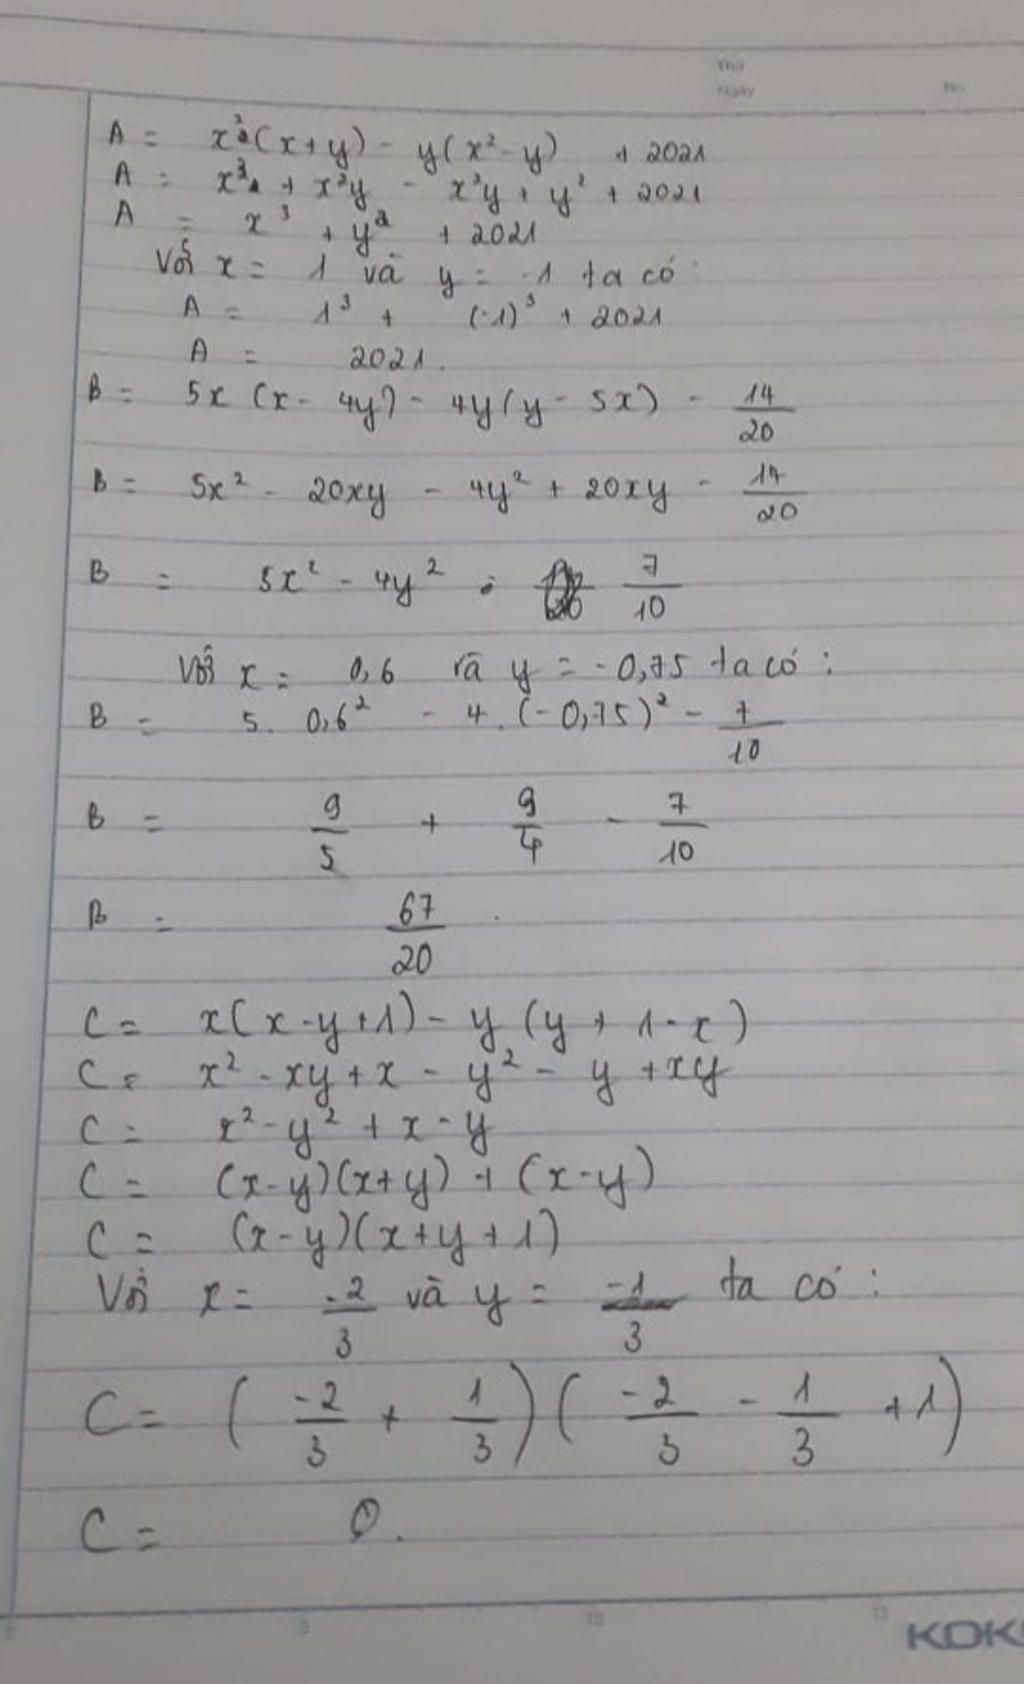 Thứ
Ngày No.
A = x²(x+y) - y(x²-y) + 2021
A = x³ + x²y - x²y + y² + 2021
A = x³ + y² + 2021
Với x = 1 và y = -1 ta có:
A = 1³ + (-1)³ + 2021
A = 2021.
B = 5x (x - 4y) - 4y(y - 5x) - 14/20
B = 5x² - 20xy - 4y² + 20xy - 14/20
B = 5x² - 4y² - 7/10
Với x = 0,6 và y = -0,75 ta có:
B = 5. 0,6² - 4. (-0,75)² - 7/10
B = 9/5 + 9/4 - 7/10
B = 67/20.
C = x(x-y+1) - y(y+1-x)
C = x² - xy + x - y² - y + xy
C = x² - y² + x - y
C = (x-y)(x+y) + (x-y)
C = (x-y)(x+y+1)
Với x = -2/3 và y = -1/3 ta có:
C = (-2/3 + 1/3)(-2/3 - 1/3 + 1)
C = 0.
5 10 15
KOK